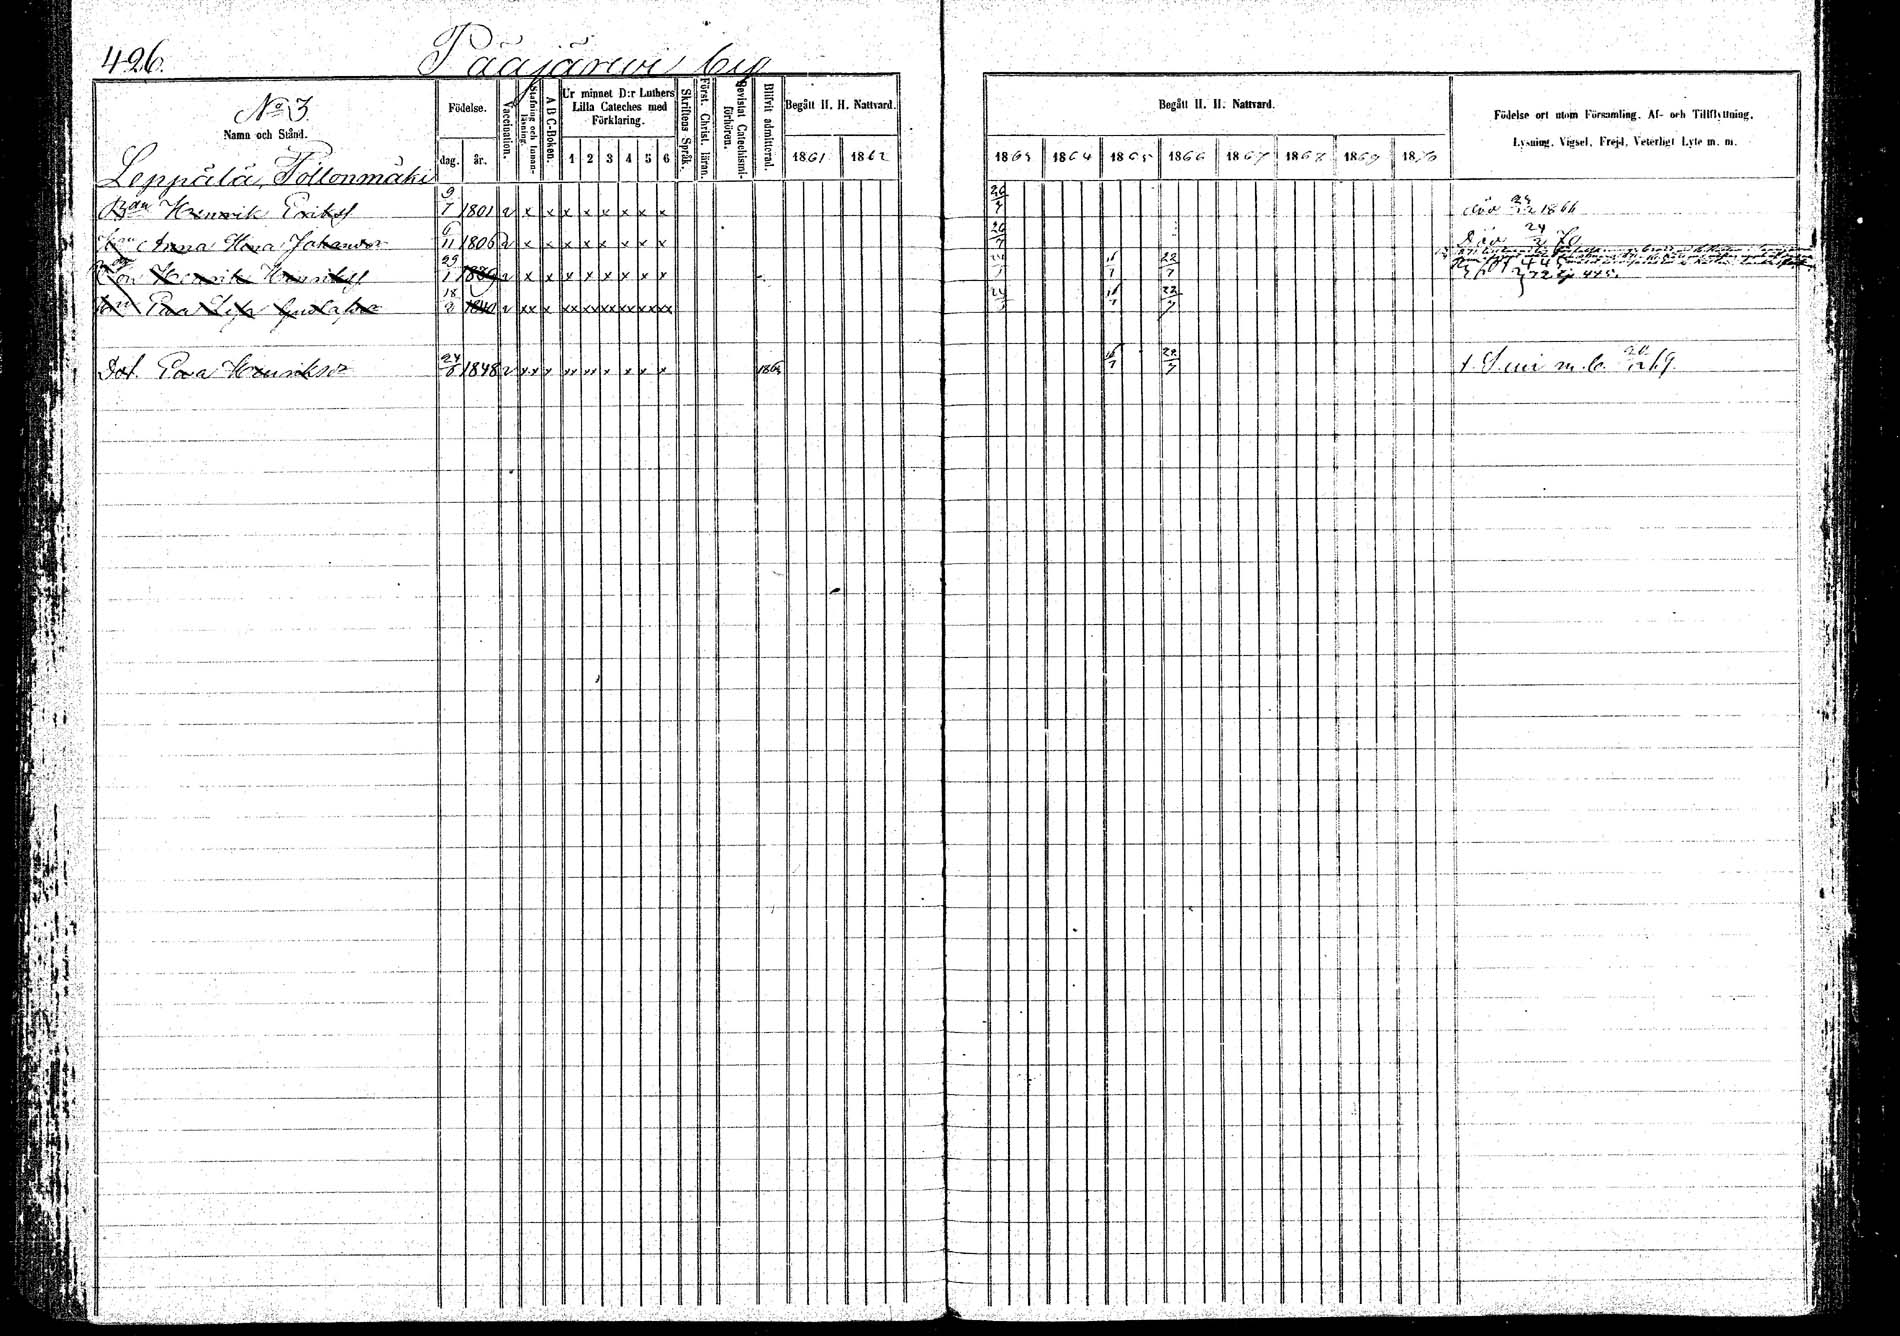 426.
Pääjärwi by
No 3.
Namn och Stånd.
Födelse.
dag. år.
Vaccination.
Stafning och Innanläsning.
A B C-Boken.
Ur minnet D:r Luthers Lilla Cateches med Förklaring.
1 2 3 4 5 6
Skriftens Språk.
Först. Christ. läran.
Bevistat Catechismi-förhören.
Blifvit admitterad.
Begått H. H. Nattvard.
1861 1862
Begått H. H. Nattvard.
1863 1864 1865 1866 1867 1868 1869 1870
Födelse ort utom Församling. Af- och Tillflyttning.
Lysning. Vigsel, Frejd, Veterligt Lyte m. m.
Leppälä, Töllonmäki
Bdn Henrik Eriksf 9/7 1801 v x x x x x x x x 26/7 död 1866
Anna Johansdr 6/11 1806 v x x x x x x x x 26/7 Död 24/2 70
Son Henrik Henriksf 29/1 1839 v x x x x x x x x 16/7 22/7
Eva Lisa Gustafsdr 18/2 1840 v xx x xx xx xx xx xx xx 16/7 22/7
Dot. Eva Henriksdr 24/6 1848 v xx x xx xx x x x x 1865 16/7 22/7 m. b. 69.